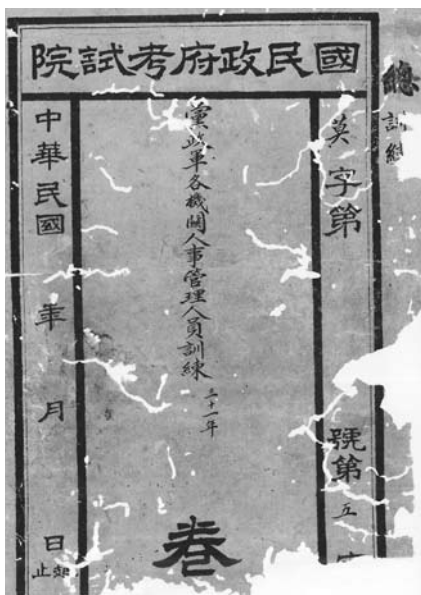 國民政府考試院
總
訓練
英字第
號第五
黨政軍各機關人事管理人員訓練 三十一年
卷
中華民國 年 月 日
起止